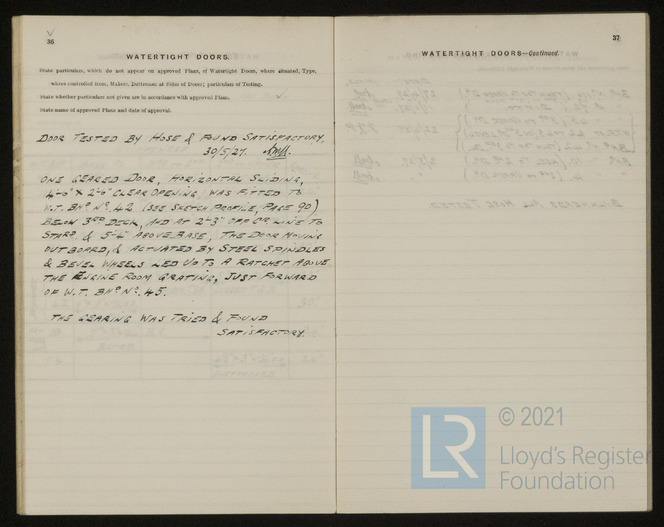 36
WATERTIGHT DOORS.
State particulars, which do not appear on approved Plans, of Watertight Doors, where situated, Type,
where controlled from, Maker, Distances at Sides of Doors; particulars of Testing.
State whether particulars not given are in accordance with approved Plans.
State name of approved Plans and date of approval.
DOOR TESTED BY HOSE & FOUND SATISFACTORY.
30/5/27.
ONE GEARED DOOR, HORIZONTAL SLIDING,
4'-0" X 2'-0" CLEAR OPENING, WAS FITTED TO
W.T. BHD NO. 42 (SEE SKETCH PROFILE, PAGE 90)
BELOW 3RD DECK, AND AT 2'-3" OFF CR LINE TO
STARD. & 5'-4" ABOVE BASE. THE DOOR MOVING
OUTBOARD, & ACTUATED BY STEEL SPINDLES
& BEVEL WHEELS LED UP TO A RATCHET ABOVE
THE ENGINE ROOM GRATING, JUST FORWARD
OF W.T. BHD NO. 45.
THE GEARING WAS TRIED & FOUND
SATISFACTORY.
37
WATERTIGHT DOORS—Continued.
LR
© 2021
Lloyd's Register
Foundation